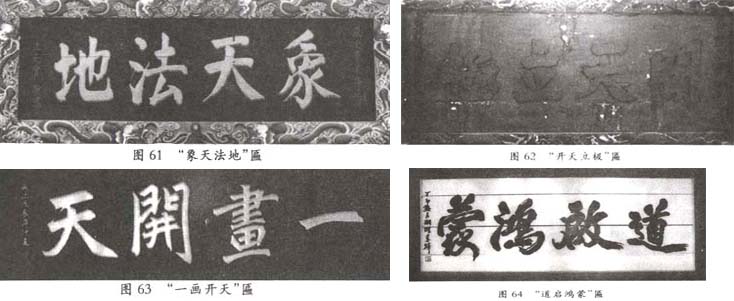 象天法地
图 61 “象天法地”匾
開天立極
图 62 “开天立极”匾
一畫開天
图 63 “一画开天”匾
道啟鴻蒙
图 64 “道启鸿蒙”匾